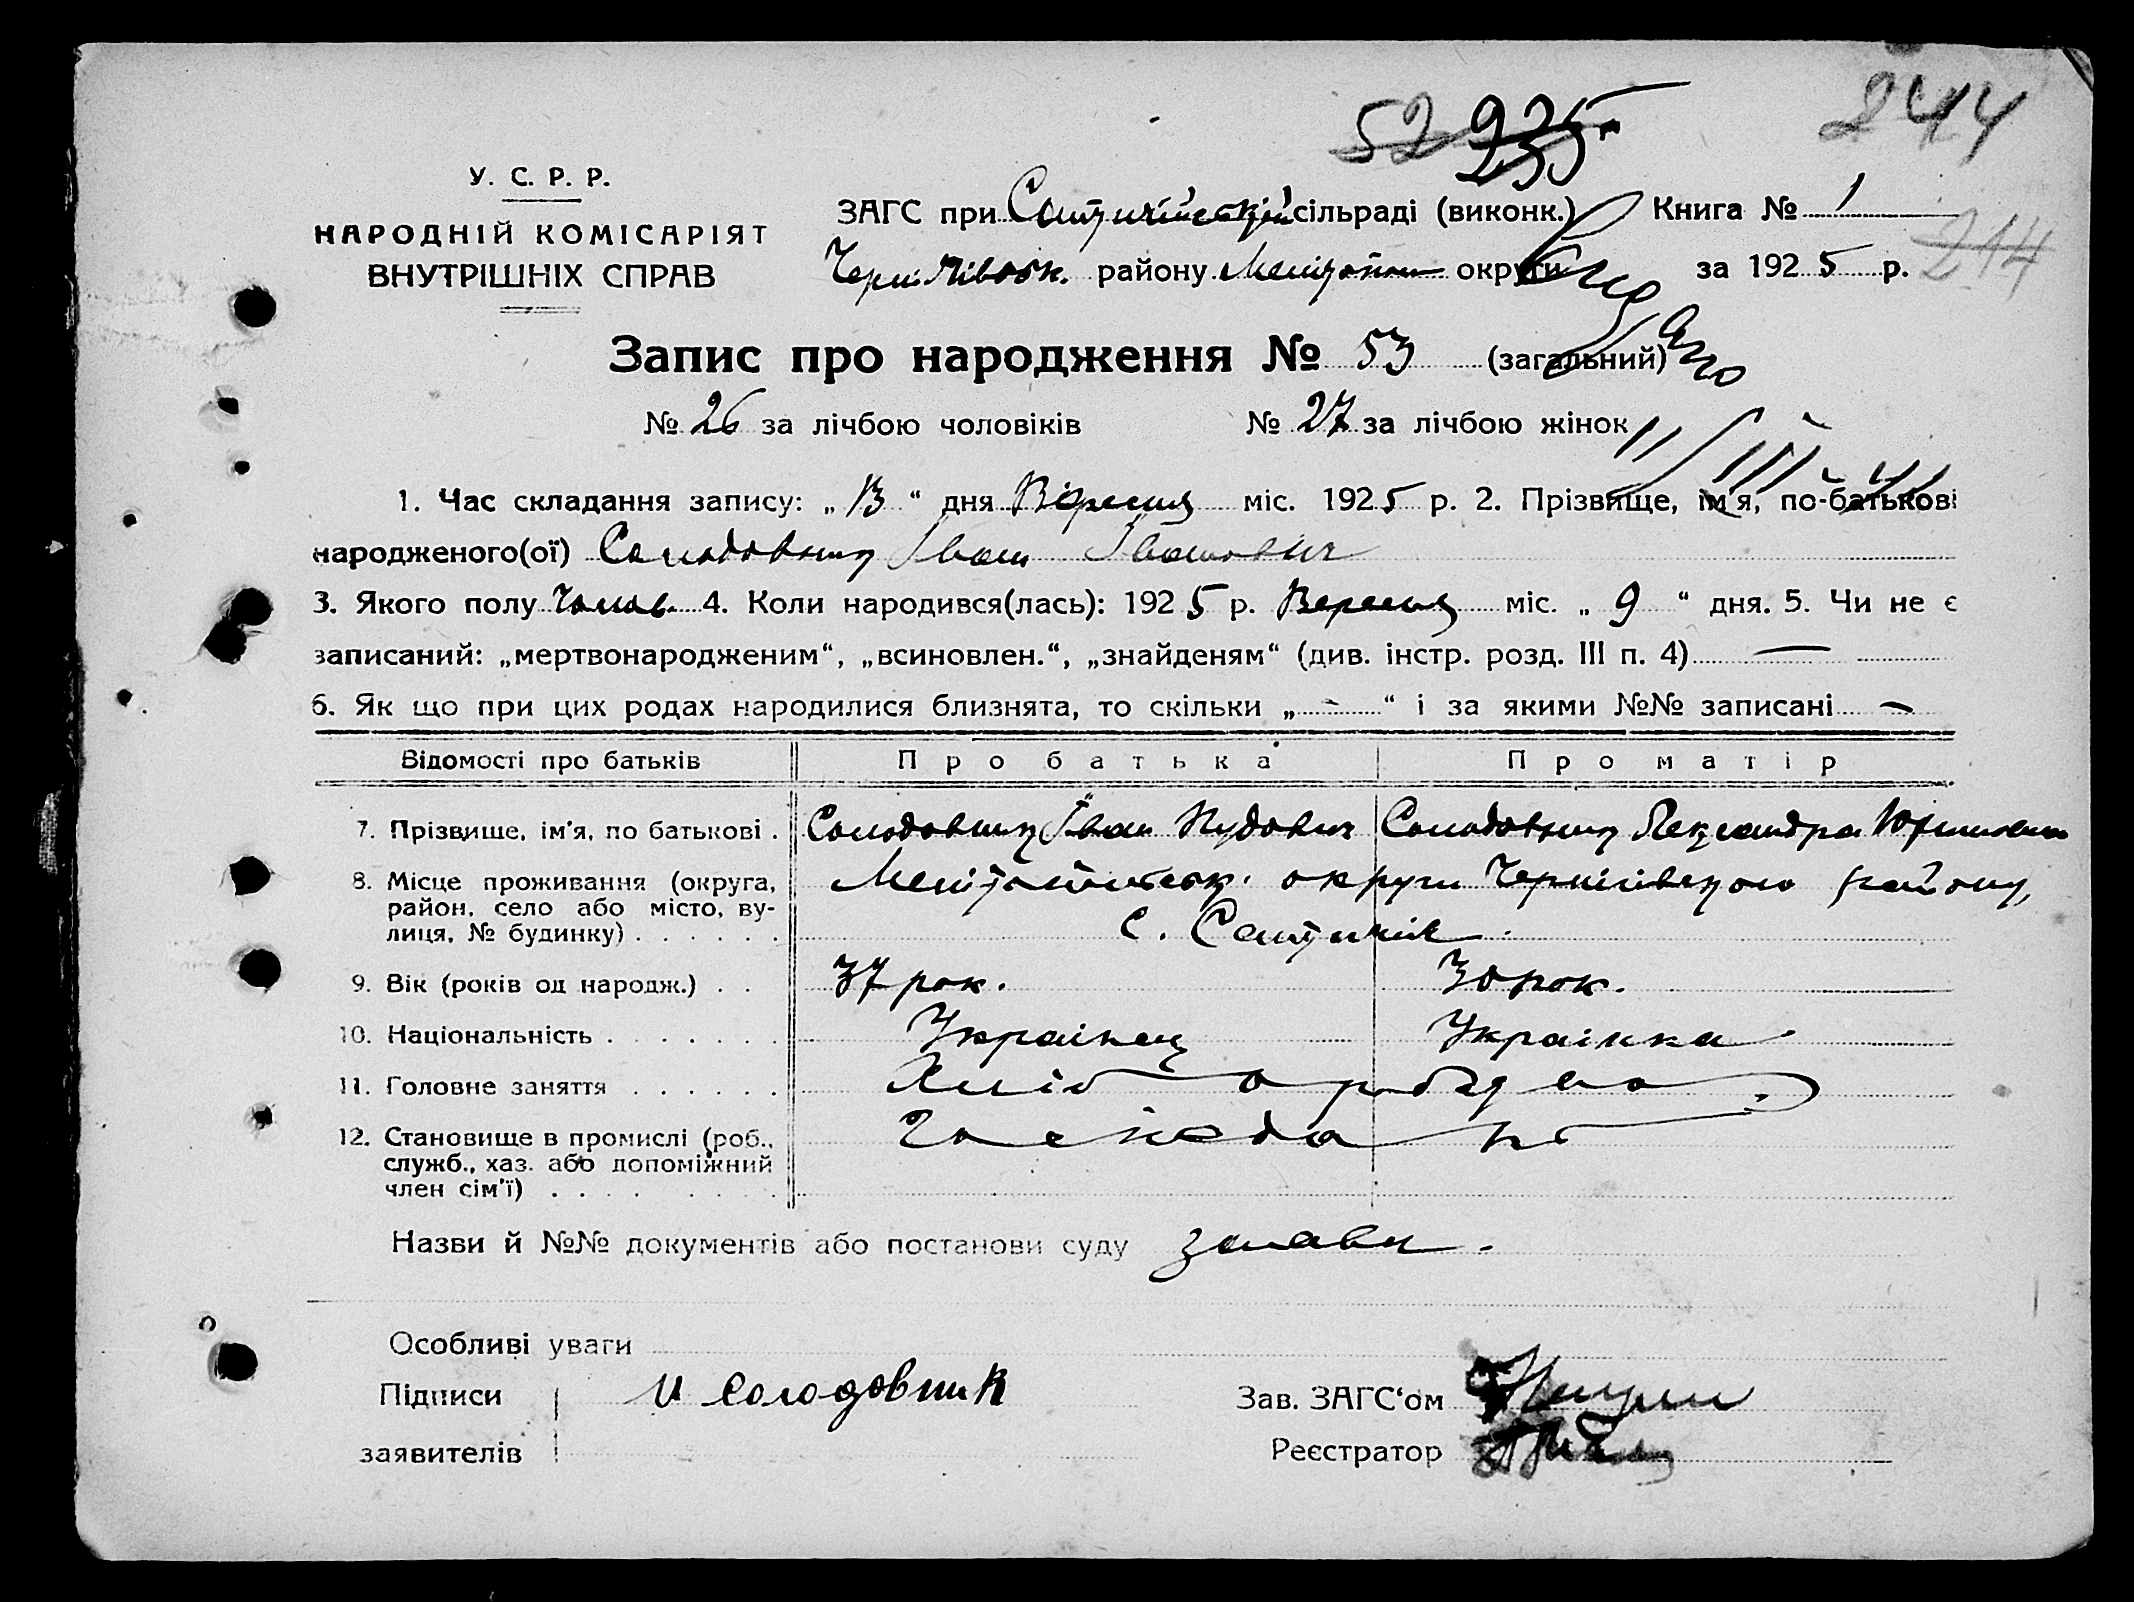 52 235 244
У. С. Р. Р.
НАРОДНІЙ КОМІСАРІЯТ
ВНУТРІШНІХ СПРАВ
ЗАГС при сільраді (виконк.) Книга № 1
району округи за 1925 р. 214
Запис про народження № 53 (загальний)
№ 26 за лічбою чоловіків № 27 за лічбою жінок
11/III-41
1. Час складання запису: „13“ дня Вересня міс. 1925 р. 2. Прізвище, ім'я, по-батькові
народженого(ої) Солодовник Іван Іванович
3. Якого полу Чолов. 4. Коли народився(лась): 1925 р. Вересня міс. „9“ дня. 5. Чи не є
записаний: „мертвонародженим“, „всиновлен.“, „знайденям“ (див. інстр. розд. III п. 4) —
6. Як що при цих родах народилися близнята, то скільки „-“ і за якими №№ записані —
Відомості про батьків Про батька Про матір
7. Прізвище, ім'я, по батькові . Солодовник Іван Нудович Солодовник Лександра
8. Місце проживання (округа, район, село або місто, вулиця, № будинку) . . . . . . Мелітопольськ. округи Чернігівського району,
с.
9. Вік (років од народж.) . . 37 рок. 30 рок.
10. Національність . . . . . . . Українец Українка
11. Головне заняття . . . . . . Хліборобство
12. Становище в промислі (роб., служб., хаз. або допоміжний член сім'ї) . . . . . . . . Господарі
Назви й №№ документів або постанови суду заяви.
Особливі уваги
Підписи И Солодовник Зав. ЗАГС'ом
заявителів Реєстратор